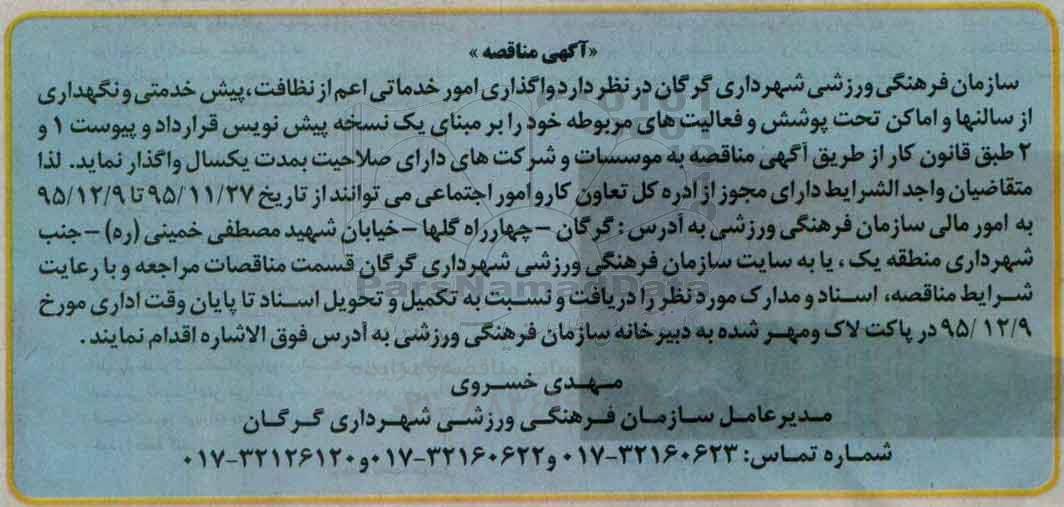 «آگهی مناقصه»
سازمان فرهنگی ورزشی شهرداری گرگان در نظر دارد واگذاری امور خدماتی اعم از نظافت، پیش خدمتی و نگهداری
از سالنها و اماکن تحت پوشش و فعالیت های مربوطه خود را بر مبنای یک نسخه پیش نویس قرارداد و پیوست ۱ و
۲ طبق قانون کار از طریق آگهی مناقصه به موسسات و شرکت های دارای صلاحیت بمدت یکسال واگذار نماید. لذا
متقاضیان واجد الشرایط دارای مجوز از ادره کل تعاون کار و امور اجتماعی می توانند از تاریخ ۹۵/۱۱/۲۷ تا ۹۵/۱۲/۹
به امور مالی سازمان فرهنگی ورزشی به آدرس : گرگان - چهارراه گلها - خیابان شهید مصطفی خمینی (ره) - جنب
شهرداری منطقه یک ، یا به سایت سازمان فرهنگی ورزشی شهرداری گرگان قسمت مناقصات مراجعه و با رعایت
شرایط مناقصه، اسناد و مدارک مورد نظر را دریافت و نسبت به تکمیل و تحویل اسناد تا پایان وقت اداری مورخ
۹۵/۱۲/۹ در پاکت لاک ومهر شده به دبیرخانه سازمان فرهنگی ورزشی به آدرس فوق الاشاره اقدام نمایند.
مهدی خسروی
مدیرعامل سازمان فرهنگی ورزشی شهرداری گرگان
شماره تماس: ۳۲۱۶۰۶۲۳-۰۱۷ و ۳۲۱۶۰۶۲۲-۰۱۷ و ۳۲۱۲۶۱۲۰-۰۱۷
ParsNamadData